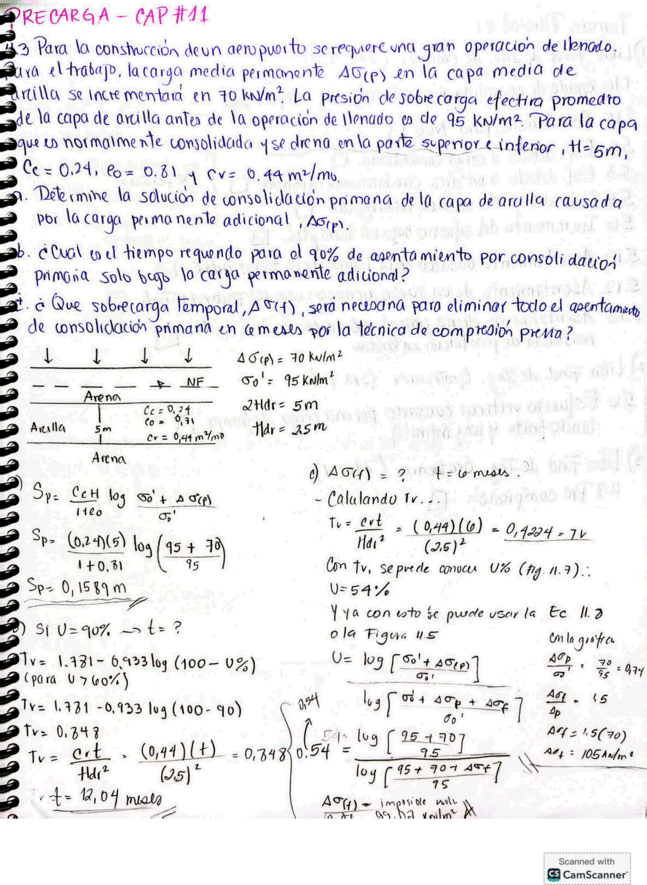 PRECARGA - CAP #11
4.3 Para la construcción de un aeropuerto se requiere una gran operación de llenado.
Para el trabajo, la carga media permanente Δσ(p) en la capa media de
arcilla se incrementará en 70 kN/m². La presión de sobrecarga efectiva promedio
de la capa de arcilla antes de la operación de llenado es de 95 KN/m² Para la capa
que es normalmente consolidada y se drena en la parte superior e inferior, H=5m,
Cc = 0,24, eo = 0.81 y cv = 0.44 m²/mo.
a. Determine la solución de consolidación primaria de la capa de arcilla causada
por la carga permanente adicional, Δσ(p).
b. ¿Cual es el tiempo requerido para el 90% de asentamiento por consolidación
primaria solo bajo la carga permanente adicional?
¿ Que sobrecarga Temporal, Δσ(f), será necesaria para eliminar todo el asentamiento
de consolidación primaria en 6 meses por la técnica de compresión previa?
Δσ(p) = 70 kN/m²
NF
σo' = 95 KN/m²
Arena
2Hdr = 5m
Cc = 0,24
Arcilla 5m eo = 0,81
Hdr = 2.5m
Cv = 0,44 m²/mo
Arena
Sp = CcH/1+eo log σo' + Δσ(p)/σo'
Sp = (0,24)(5)/1+0,81 log (95 + 70/95)
Sp = 0,1589 m
b) Si U = 90% → t = ?
Tv = 1.781 - 0.933 log (100 - U%)
(para U > 60%)
Tv = 1.781 - 0.933 log (100 - 90)
Tv = 0.848
Tv = cvt/Hdr² = (0,44)(t)/(2.5)² = 0,848
t = 12,04 meses
c) Δσ(f) = ? t = 6 meses.
- Calulando Tv...
Tv = cvt/Hdr² = (0,44)(6)/(2.5)² = 0,4224 = Tv
Con tv, se prede conocer U% (fig. 11.7) ∴
U = 54%
Y ya con esto se puede usar la Ec 11.8
o la Figura 11.5
U = log [σo' + Δσ(p)/σo'] / log [σo' + Δσp + Δσf/σo']
0.54 = log [95 + 70/95] / log [95 + 70 + Δσf/95]
Con la gráfica
Δσp/σo' = 70/95 = 0,74
Δσf/Δp = 1.5
Δσf = 1.5(70)
Δσf = 105 kN/m²
0,54
Δσ(f) =
Scanned with
CS CamScanner